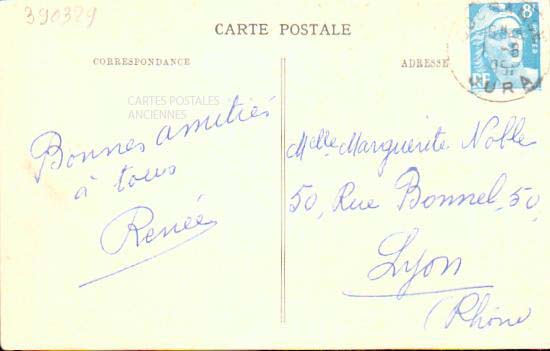 390329
CARTE POSTALE
CORRESPONDANCE
ADRESSE
8F
RF
JURA
CARTES POSTALES
ANCIENNES
Bonnes amitiés
à tous
Renée
Melle Marguerite Noble
50, Rue Bonnel, 50,
Lyon
(Rhône